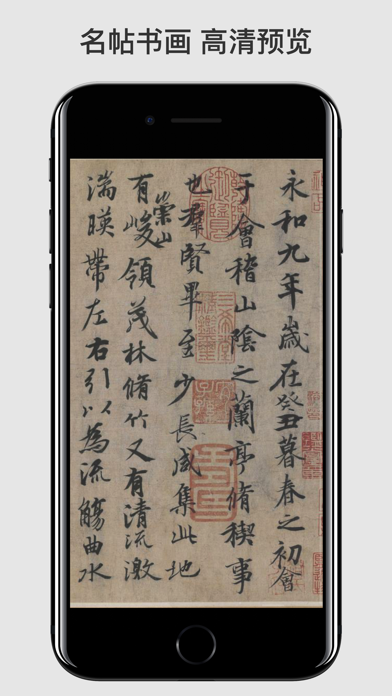 名帖书画 高清预览
永和九年歲在癸丑暮春之初會
于會稽山陰之蘭亭脩稧事
也羣賢畢至少長咸集此地
有崇山峻領茂林脩竹又有清流激
湍暎帶左右引以為流觴曲水